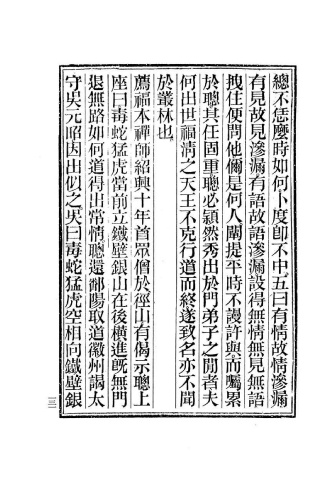 總不恁麼時如何卜度卽不中五曰有情故情滲漏
有見故見滲漏有語故語滲漏設得無情無見無語
拽住便問他儞是何人闡提平時不謾許與而囑累
於聰其任固重聰必穎然秀出於門弟子之閒者夫
何出世福淸之天王不克行道而終遂致名亦不聞
於叢林也
薦福本禪師紹興十年首眾僧於徑山有偈示聰上
座曰毒蛇猛虎當前立鐵壁銀山在後橫進旣無門
退無路如何道得出常情聰還鄱陽取道徽州謁太
守吳元昭因出似之吳曰毒蛇猛虎空相向鐵壁銀